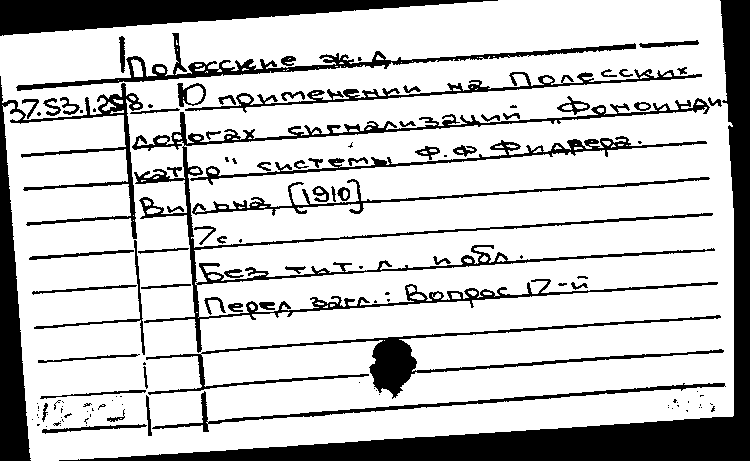 Полесские ж.д.
37.53.1.258. О применении на Полесских
дорогах сигнализаций „Фоноинди-
катор" системы Ф.Ф. Фидлера.
Вильна, [1910].
7с.
Без тит. л. и обл.
Перед загл.: Вопрос 17-й